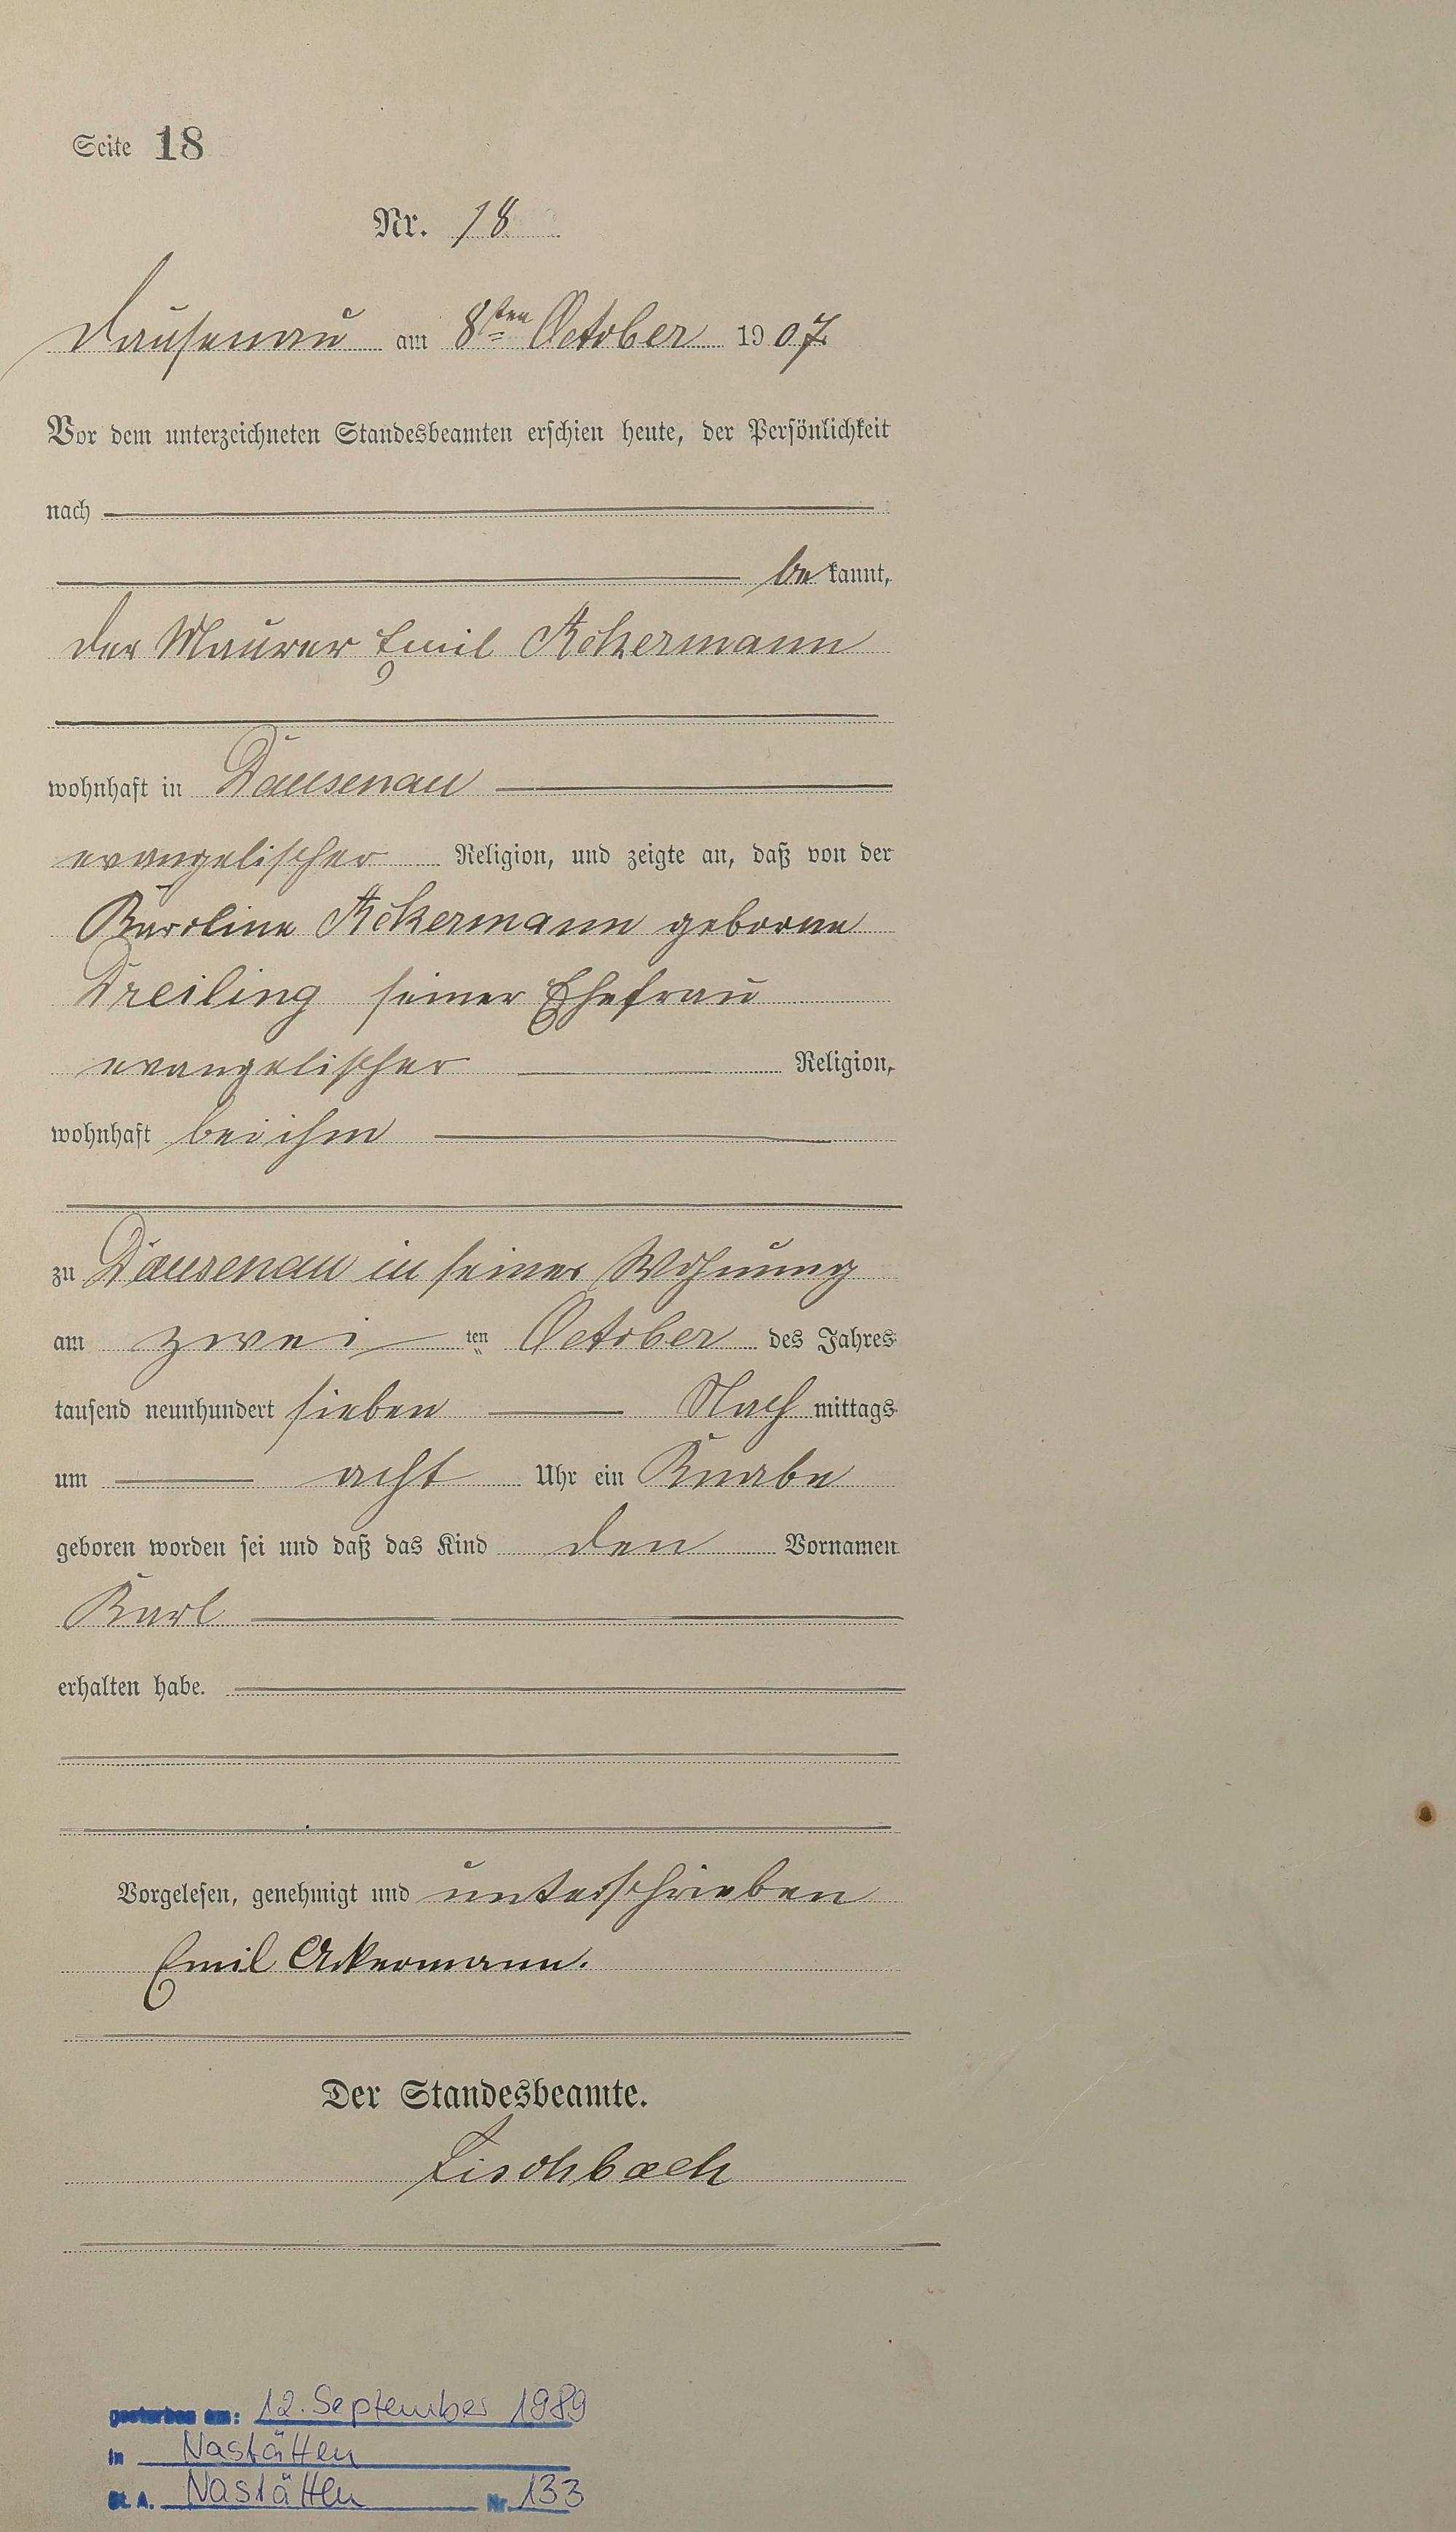 Seite 18
Nr. 18
Dausenau am 8ten October 1907
Vor dem unterzeichneten Standesbeamten erschien heute, der Persönlichkeit
nach
be kannt,
der Maurer Emil Ackermann
wohnhaft in Dausenau
evangelischer Religion, und zeigte an, daß von der
Karoline Ackermann geborne
Dreiling seiner Ehefrau
evangelischer Religion,
wohnhaft bei ihm
zu Dausenau in seiner Wohnung
am zwei ten October des Jahres
tausend neunhundert sieben Nach mittags
um acht Uhr ein Knabe
geboren worden sei und daß das Kind den Vornamen
Karl
erhalten habe.
Vorgelesen, genehmigt und unterschrieben
Emil Ackermann.
Der Standesbeamte.
Fischbach
gestorben am: 12. September 1989
in Nastätten
St. A. Nastätten Nr. 133